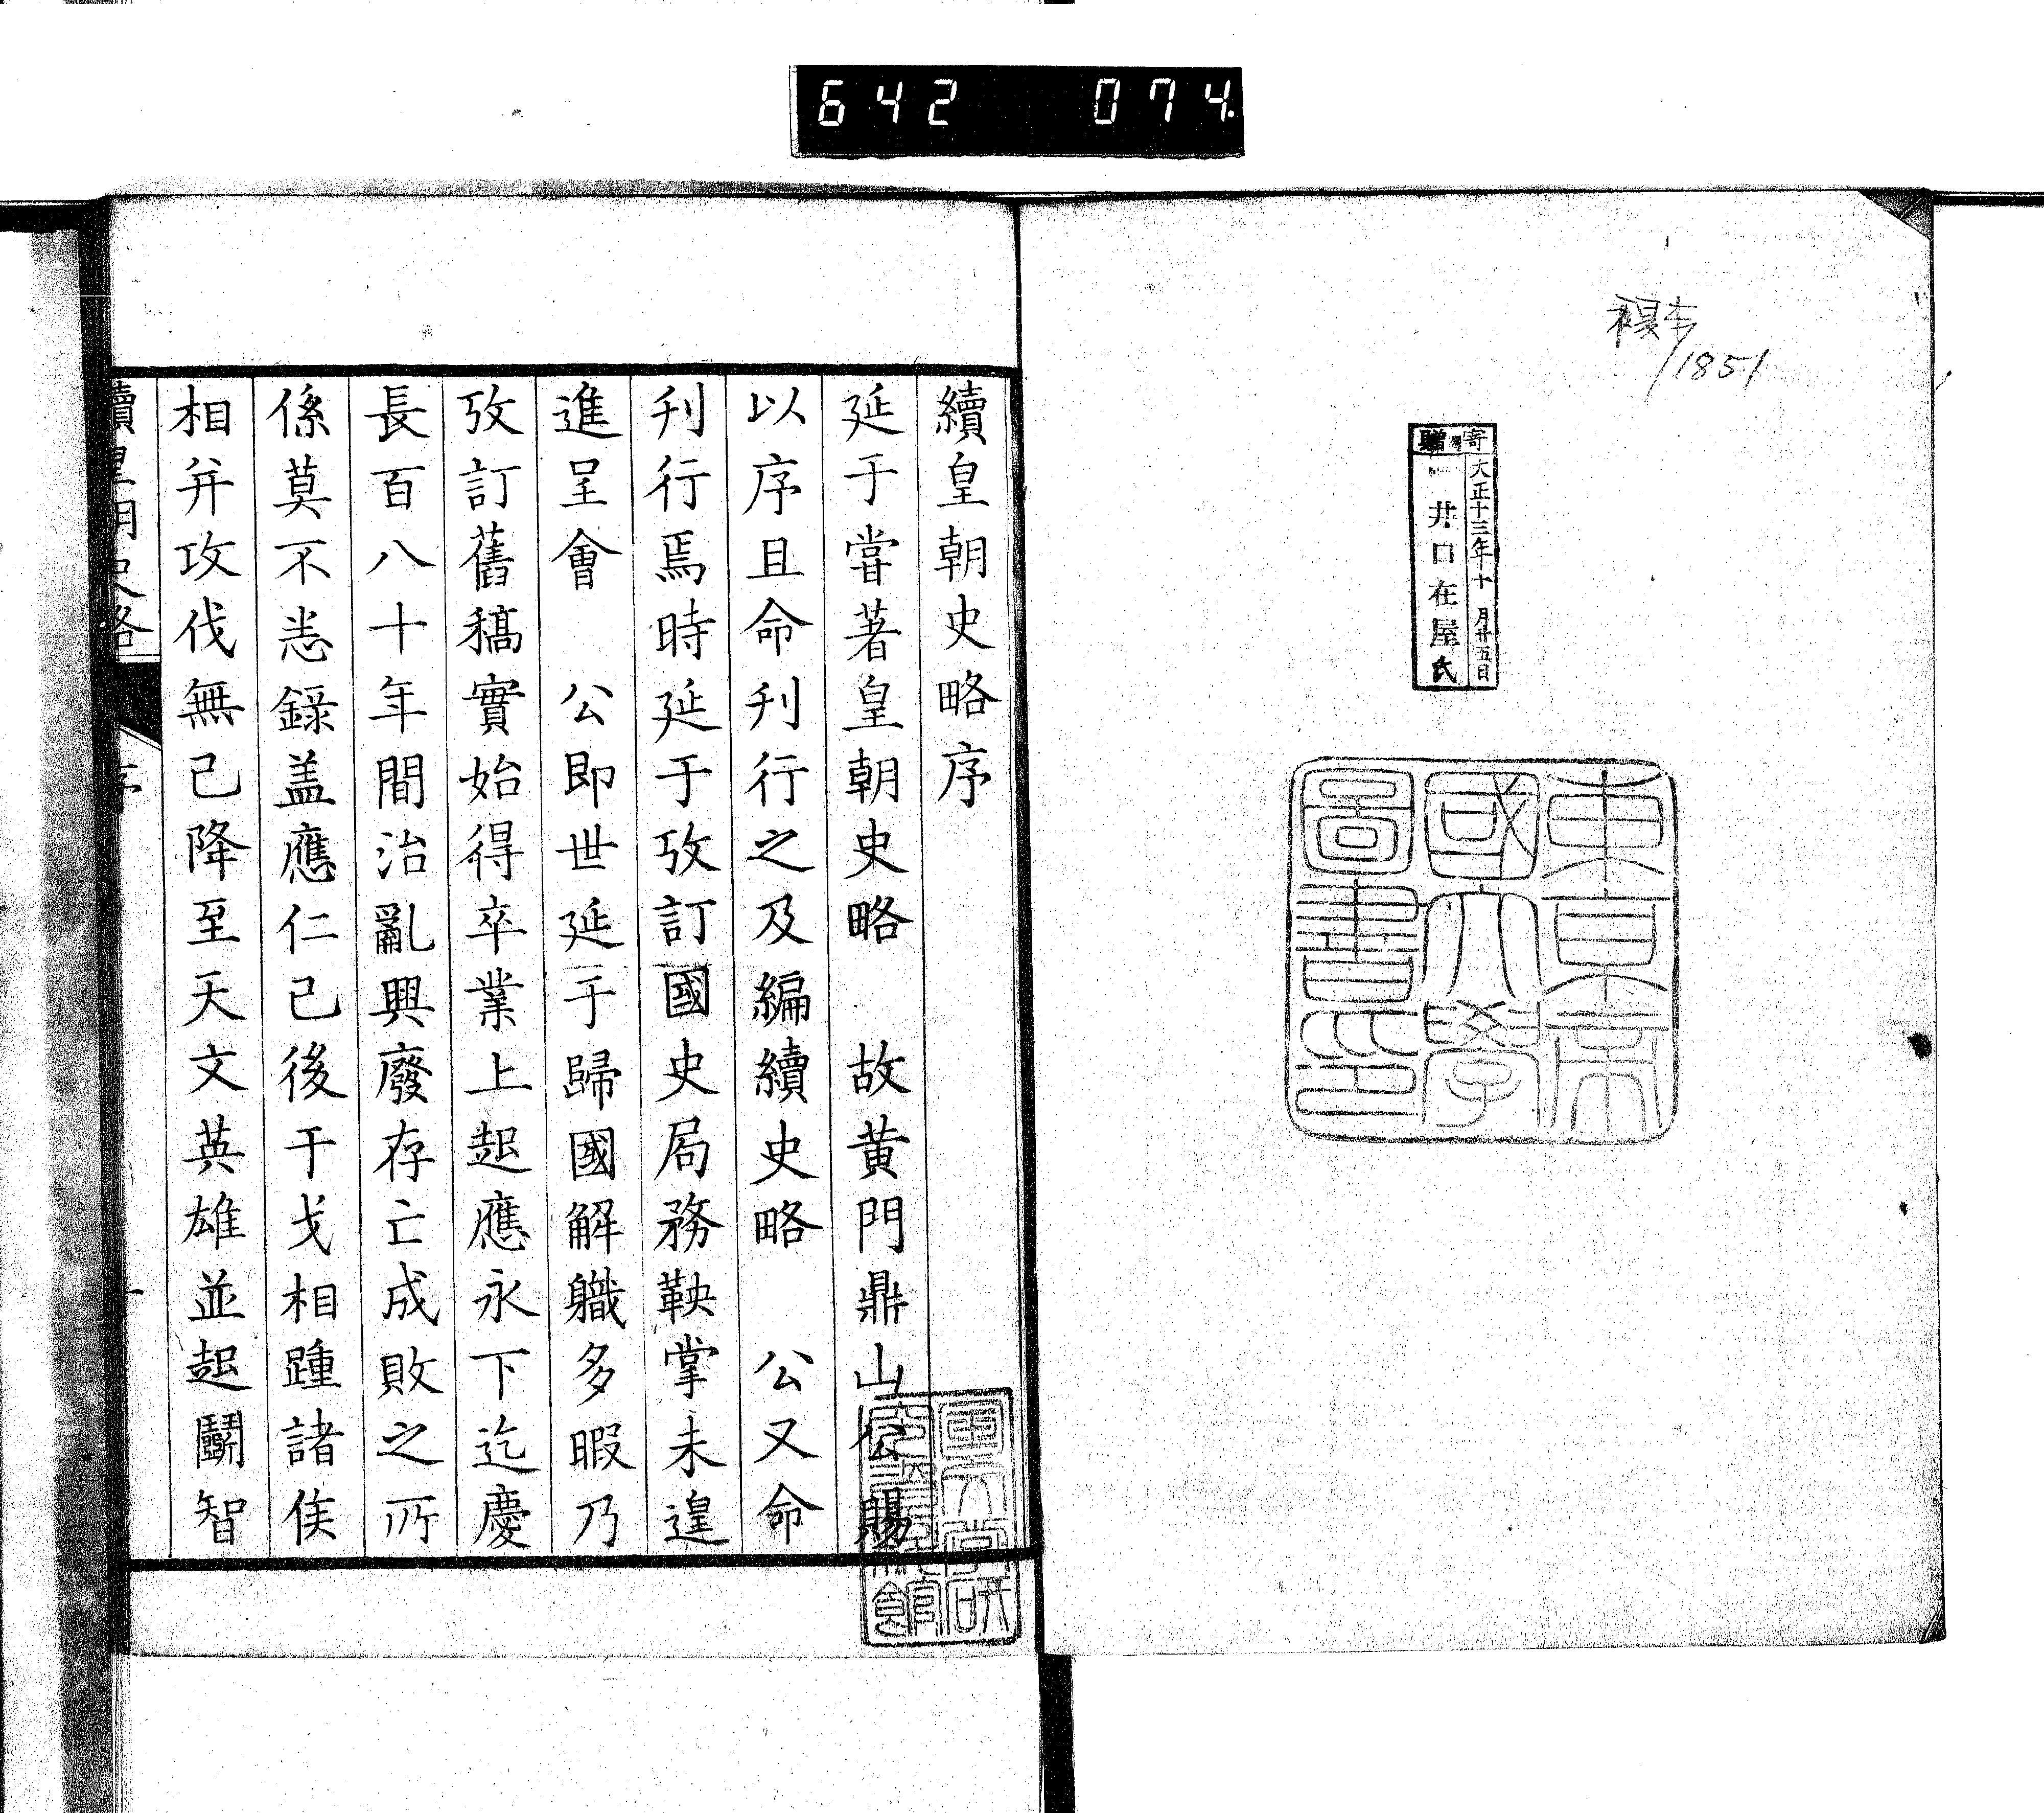 642 074.
複本
1851
寄贈
大正十三年十月廿五日
井口在屋氏
東京帝
國大學
圖書印
續皇朝史略序
延于嘗著皇朝史略 故黄門鼎山公賜
以序且命刋行之及編續史略 公又命
刋行焉時延于攷訂國史局務鞅掌未遑
進呈會 公即世延于歸國解職多暇乃
攷訂舊稿實始得卒業上起應永下迄慶
長百八十年間治亂興廢存亡成敗之所
係莫不悉錄盖應仁已後干戈相踵諸侯
相并攻伐無已降至天文英雄並起鬭智
續皇朝史略
序
一